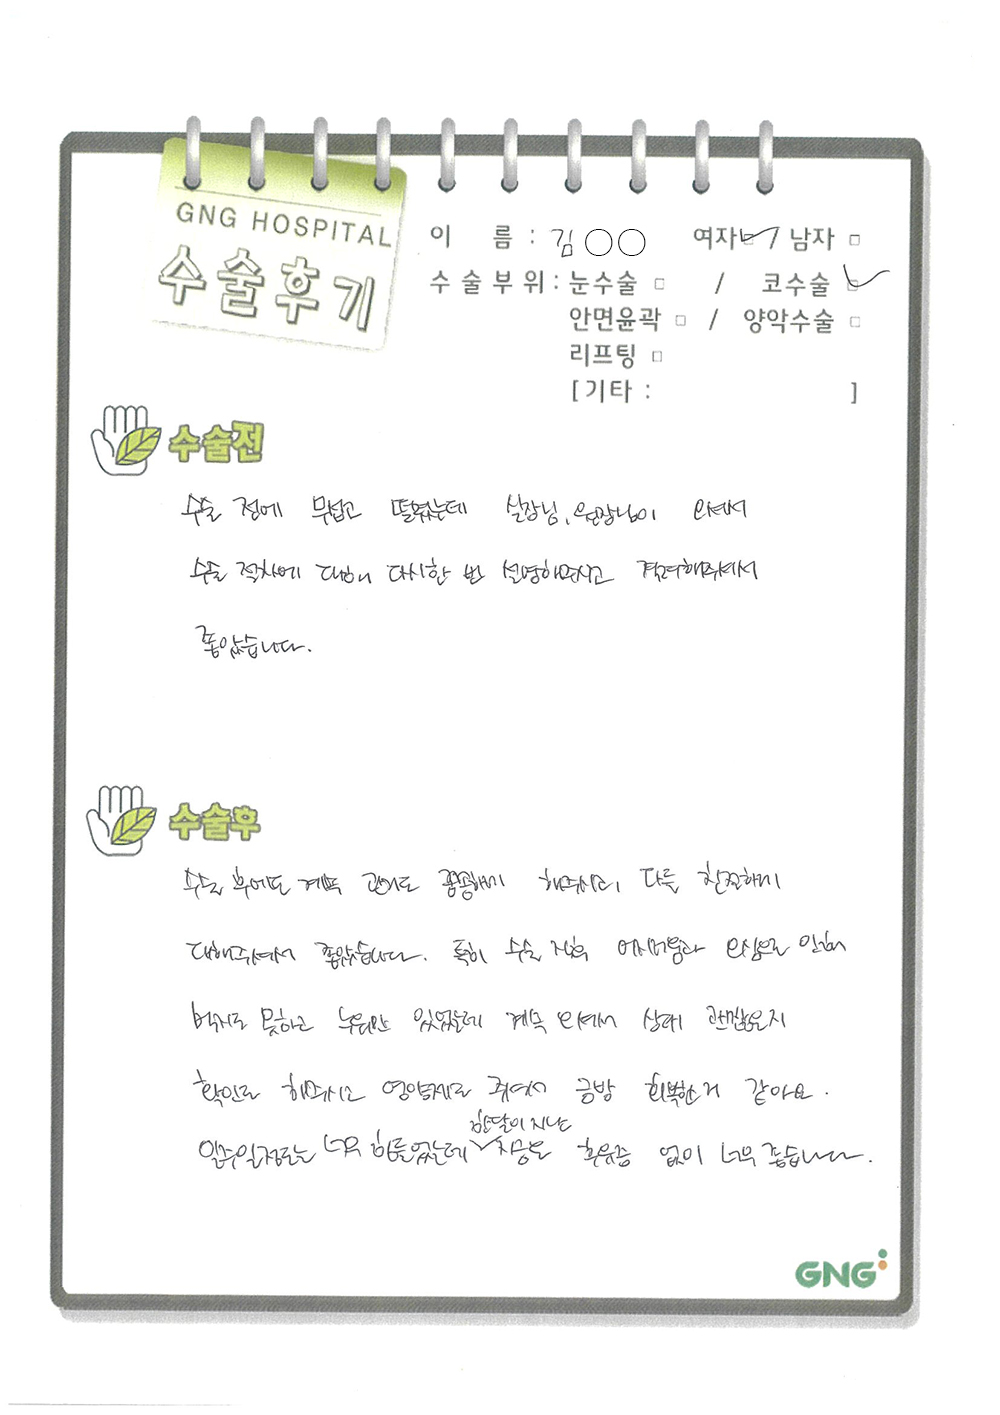 GNG HOSPITAL
수술후기
이 름 : 김○○ 여자 / 남자
수술부위 : 눈수술 / 코수술
안면윤곽 / 양악수술
리프팅
[기타 : ]
수술전
수술 전에 무섭고 떨렸는데 실장님, 원장님이 오셔서
수술 절차에 대해 다시한 번 설명해주시고 격려해주셔서
좋았습니다.
수술후
수술 후에도 계속 관리도 꼼꼼하게 해주시고, 다들 친절하게
대해주셔서 좋았습니다. 특히 수술 직후 어지러움과 으로 인해
먹지도 못하고 누워만 있었는데 계속 오셔서 상태 괜찮은지
확인도 해주시고 영양제도 주셔서 금방 회복한거 같아요.
일주일정도는 너무 힘들었는데 한달이 지난 지금은 후유증 없이 너무 좋습니다.
GNG